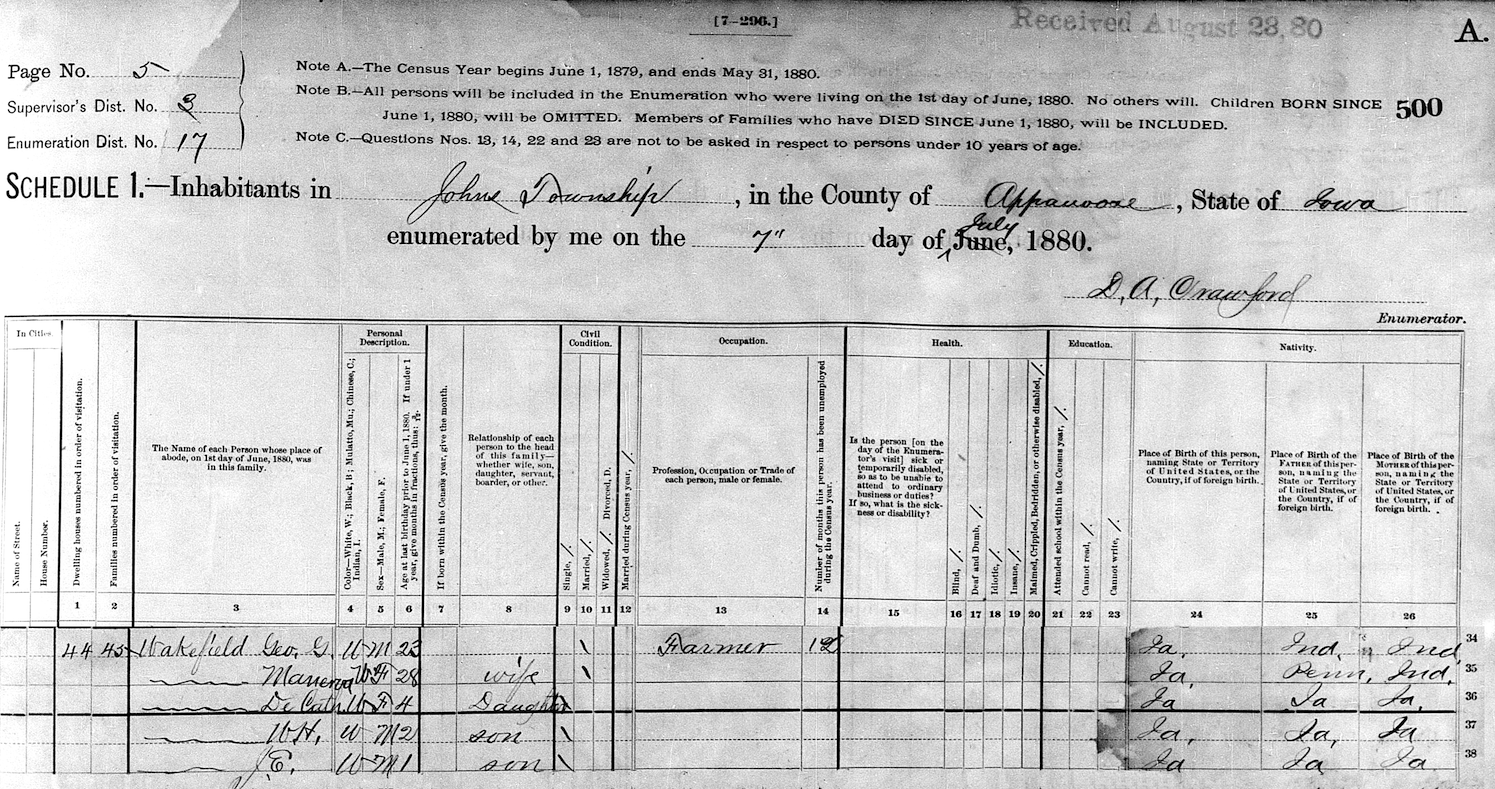 [7-296.]
Received August 23, 80
A.
Page No. 5
Supervisor's Dist. No. 3
Enumeration Dist. No. 17
Note A.—The Census Year begins June 1, 1879, and ends May 31, 1880.
Note B.—All persons will be included in the Enumeration who were living on the 1st day of June, 1880. No others will. Children BORN SINCE
June 1, 1880, will be OMITTED. Members of Families who have DIED SINCE June 1, 1880, will be INCLUDED.
Note C.—Questions Nos. 13, 14, 22 and 23 are not to be asked in respect to persons under 10 years of age.
500
SCHEDULE 1.—Inhabitants in Johns Township, in the County of Appanoose, State of Iowa
enumerated by me on the 7" day of July June, 1880.
D. A. Crawford
Enumerator.
In Cities.
Name of Street.
House Number.
Dwelling houses numbered in order of visitation.
Families numbered in order of visitation.
The Name of each Person whose place of
abode, on 1st day of June, 1880, was
in this family.
Personal
Description.
Color—White, W.; Black, B.; Mulatto, Mu.; Chinese, C.;
Indian, I.
Sex—Male, M.; Female, F.
Age at last birthday prior to June 1, 1880. If under 1
year, give months in fractions, thus: 3/12.
If born within the Census year, give the month.
Relationship of each
person to the head
of this family—
whether wife, son,
daughter, servant,
boarder, or other.
Civil
Condition.
Single, /.
Married, /.
Widowed, /. Divorced, D.
Married during Census year, /.
Occupation.
Profession, Occupation or Trade of
each person, male or female.
Number of months this person has been unemployed
during the Census year.
Health.
Is the person [on the
day of the Enumera-
tor's visit] sick or
temporarily disabled,
so as to be unable to
attend to ordinary
business or duties?
If so, what is the sick-
ness or disability?
Blind, /.
Deaf and Dumb, /.
Idiotic, /.
Insane, /.
Maimed, Crippled, Bedridden, or otherwise disabled, /.
Education.
Attended school within the Census year, /.
Cannot read, /.
Cannot write, /.
Nativity.
Place of Birth of this person,
naming State or Territory
of United States, or the
Country, if of foreign birth.
Place of Birth of the
FATHER of this per-
son, naming the
State or Territory
of United States, or
the Country, if of
foreign birth.
Place of Birth of the
MOTHER of this per-
son, naming the
State or Territory
of United States, or
the Country, if of
foreign birth.
1 2 3 4 5 6 7 8 9 10 11 12 13 14 15 16 17 18 19 20 21 22 23 24 25 26
44 45 Wakefield Geo. G. W M 23 \ Farmer 12 Ia. Ind. Ind 34
Manerva W F 28 wife \ Ia. Penn. Ind. 35
De Cath W F 4 Daughter \ Ia Ia Ia. 36
W H. W M 2 son \ Ia. Ia. Ia 37
J E. W M 1 son \ Ia Ia Ia. 38